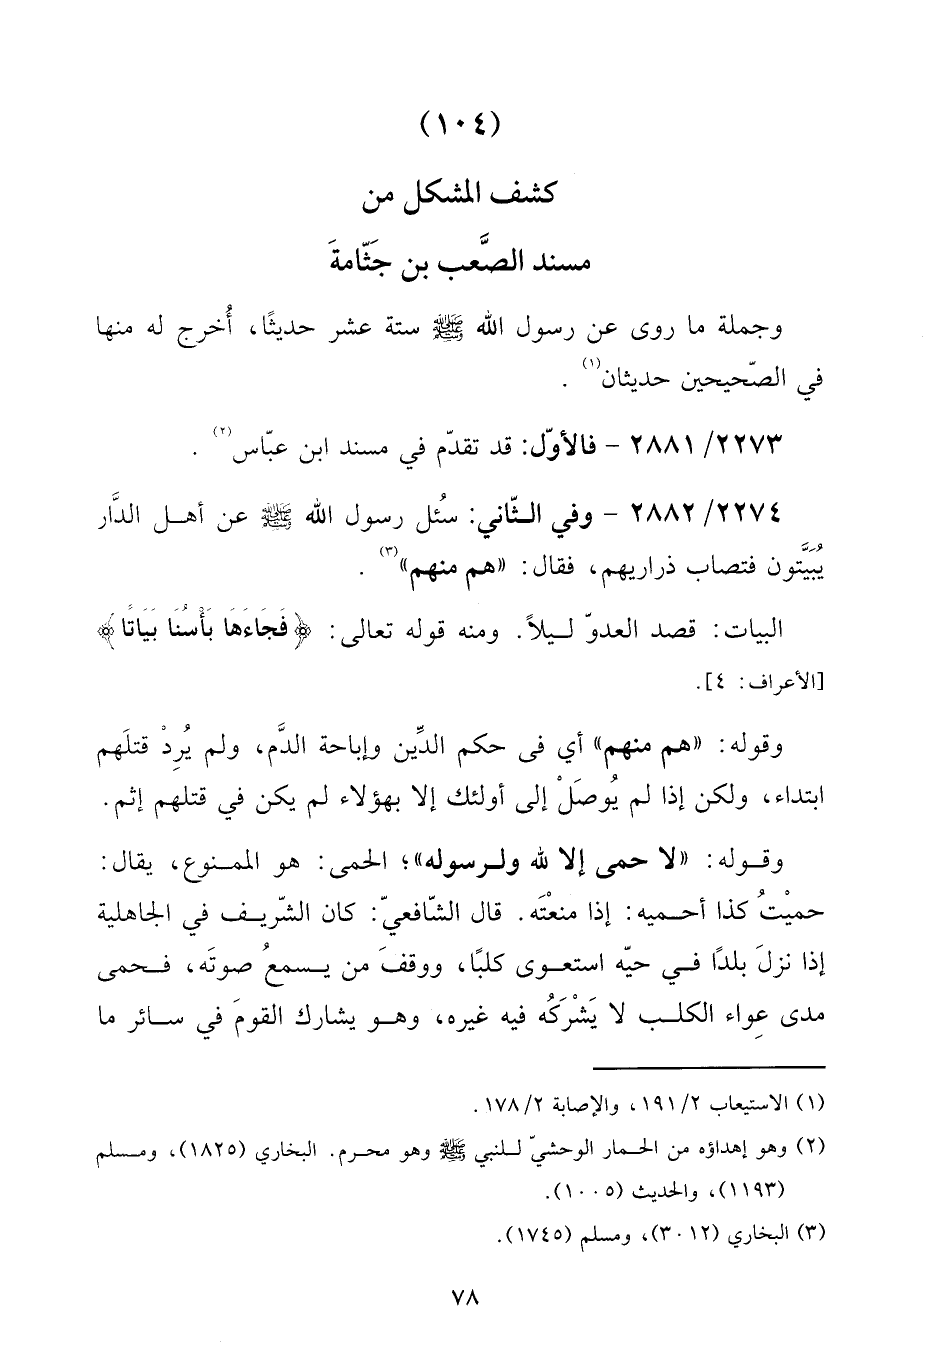 (١٠٤)
كشف المشكل من
مسند الصَّعب بن جَثّامةَ
وجملة ما روى عن رسول الله ﷺ ستة عشر حديثًا، أُخرج له منها
في الصّحيحين حديثان(١) .
٢٢٧٣/ ٢٨٨١ - فالأوّل: قد تقدّم في مسند ابن عبّاس(٢) .
٢٢٧٤/ ٢٨٨٢ - وفي الـثّاني: سئُل رسول الله ﷺ عن أهـل الدَّار
يُبَيَّتون فتصاب ذراريهم، فقال: «هم منهم»(٣) .
البيات: قصد العدوّ لـيلاً. ومنه قوله تعالى: ﴿فَجَاءَهَا بَأْسُنَا بَيَاتًا﴾
[الأعراف: ٤].
وقوله: «هم منهم» أي فى حكم الدِّين وإباحة الدَّم، ولم يُرِدْ قتلَهم
ابتداء، ولكن إذا لم يُوصَلْ إلى أولئك إلا بهؤلاء لم يكن في قتلهم إثم.
وقـوله: «لا حمى إلا لله ولـرسوله»؛ الحمى: هو الممـنوع، يقال:
حميْتُ كذا أحـميه: إذا منعْتَه. قال الشّافعيّ: كان الشّريـف في الجاهلية
إذا نزلَ بلدًا فـي حيّه استعـوى كلبًا، ووقفَ من يـسمعُ صوتَه، فـحمى
مدى عِواء الكلـب لا يَشْرَكُه فيه غيره، وهـو يشارك القومَ في سـائر ما
(١) الاستيعاب ٢/ ١٩١، والإصابة ٢/ ١٧٨.
(٢) وهو إهداؤه من الحـمار الوحشيّ لـلنبي ﷺ وهو محـرم. البخاري (١٨٢٥)، ومـسلم
(١١٩٣)، والحديث (١٠٠٥).
(٣) البخاري (٣٠١٢)، ومسلم (١٧٤٥).
٧٨